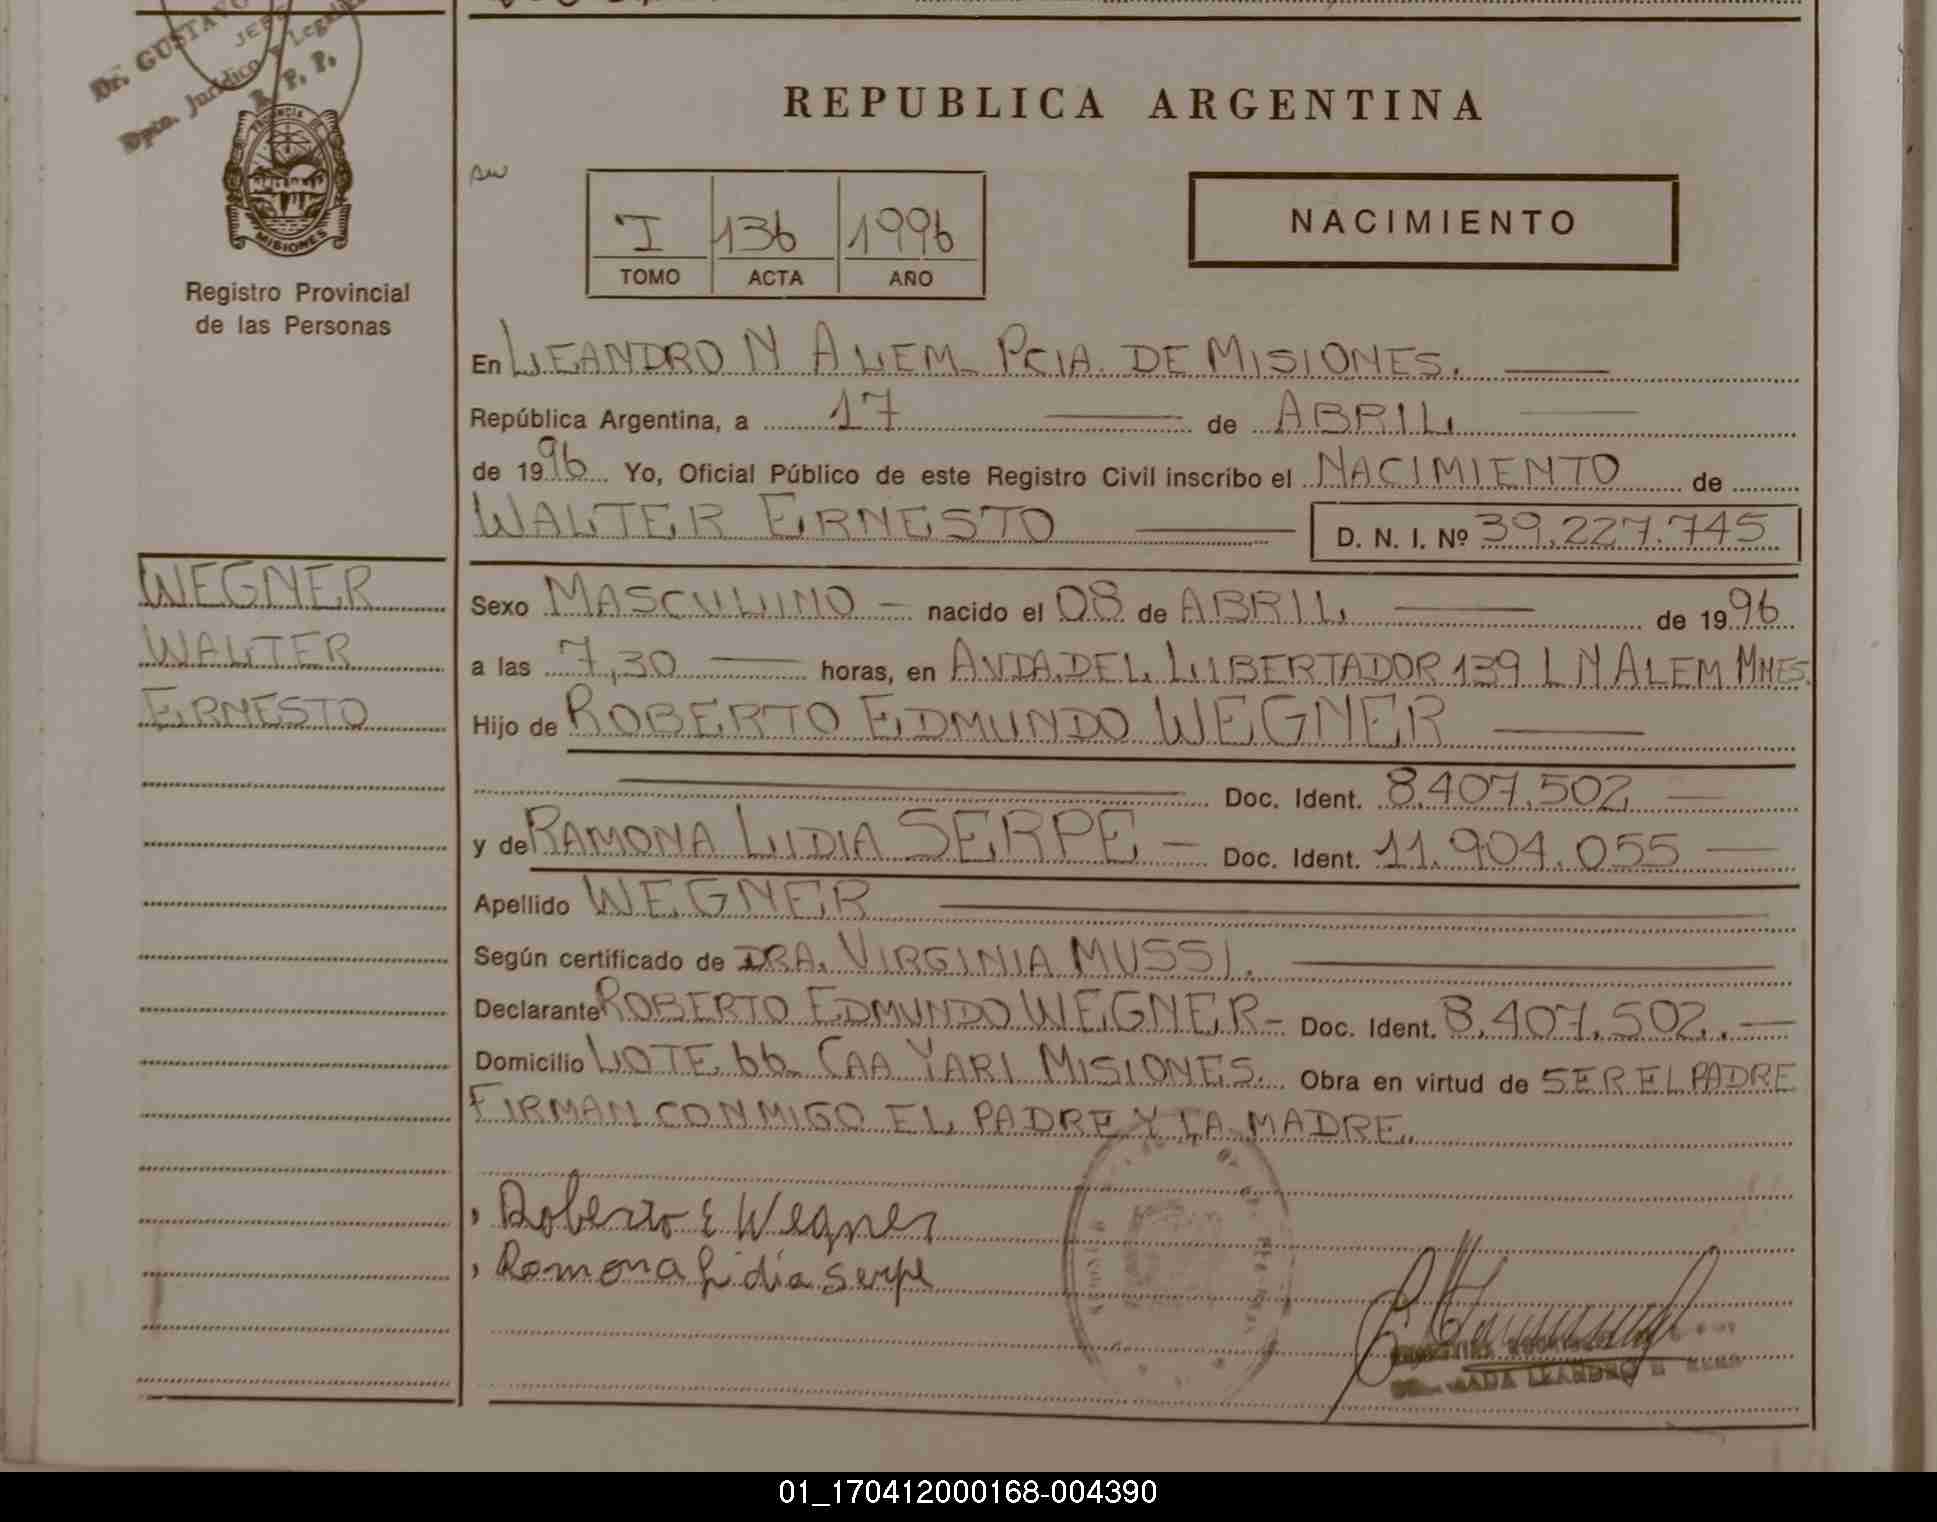 Dr. GUSTAVO
JEFE
Dpto. Jurídico y Legal
R. P. P.
PROVINCIA DE
MISIONES
Registro Provincial
de las Personas
REPUBLICA ARGENTINA
I 136 1996
TOMO ACTA AÑO
NACIMIENTO
En LEANDRO N ALEM PCIA. DE MISIONES.
República Argentina, a 17 de ABRIL
de 1996 Yo, Oficial Público de este Registro Civil inscribo el NACIMIENTO de
WALTER ERNESTO D. N. I. Nº 39.227.745
WEGNER
WALTER
ERNESTO
Sexo MASCULINO - nacido el 08 de ABRIL de 1996
a las 7,30 horas, en AVDA. DEL LIBERTADOR 139 L N ALEM MNES.
Hijo de ROBERTO EDMUNDO WEGNER
Doc. Ident. 8.407.502
y de RAMONA LIDIA SERPE - Doc. Ident. 11.904.055
Apellido WEGNER
Según certificado de DRA. VIRGINIA MUSSI.
Declarante ROBERTO EDMUNDO WEGNER - Doc. Ident. 8.407.502.
Domicilio LOTE 66 CAA YARI MISIONES. Obra en virtud de SER EL PADRE
FIRMAN CONMIGO EL PADRE Y LA MADRE.
Roberto E Wegner
Ramona Lidia Serpe
LEANDRO N
01_170412000168-004390